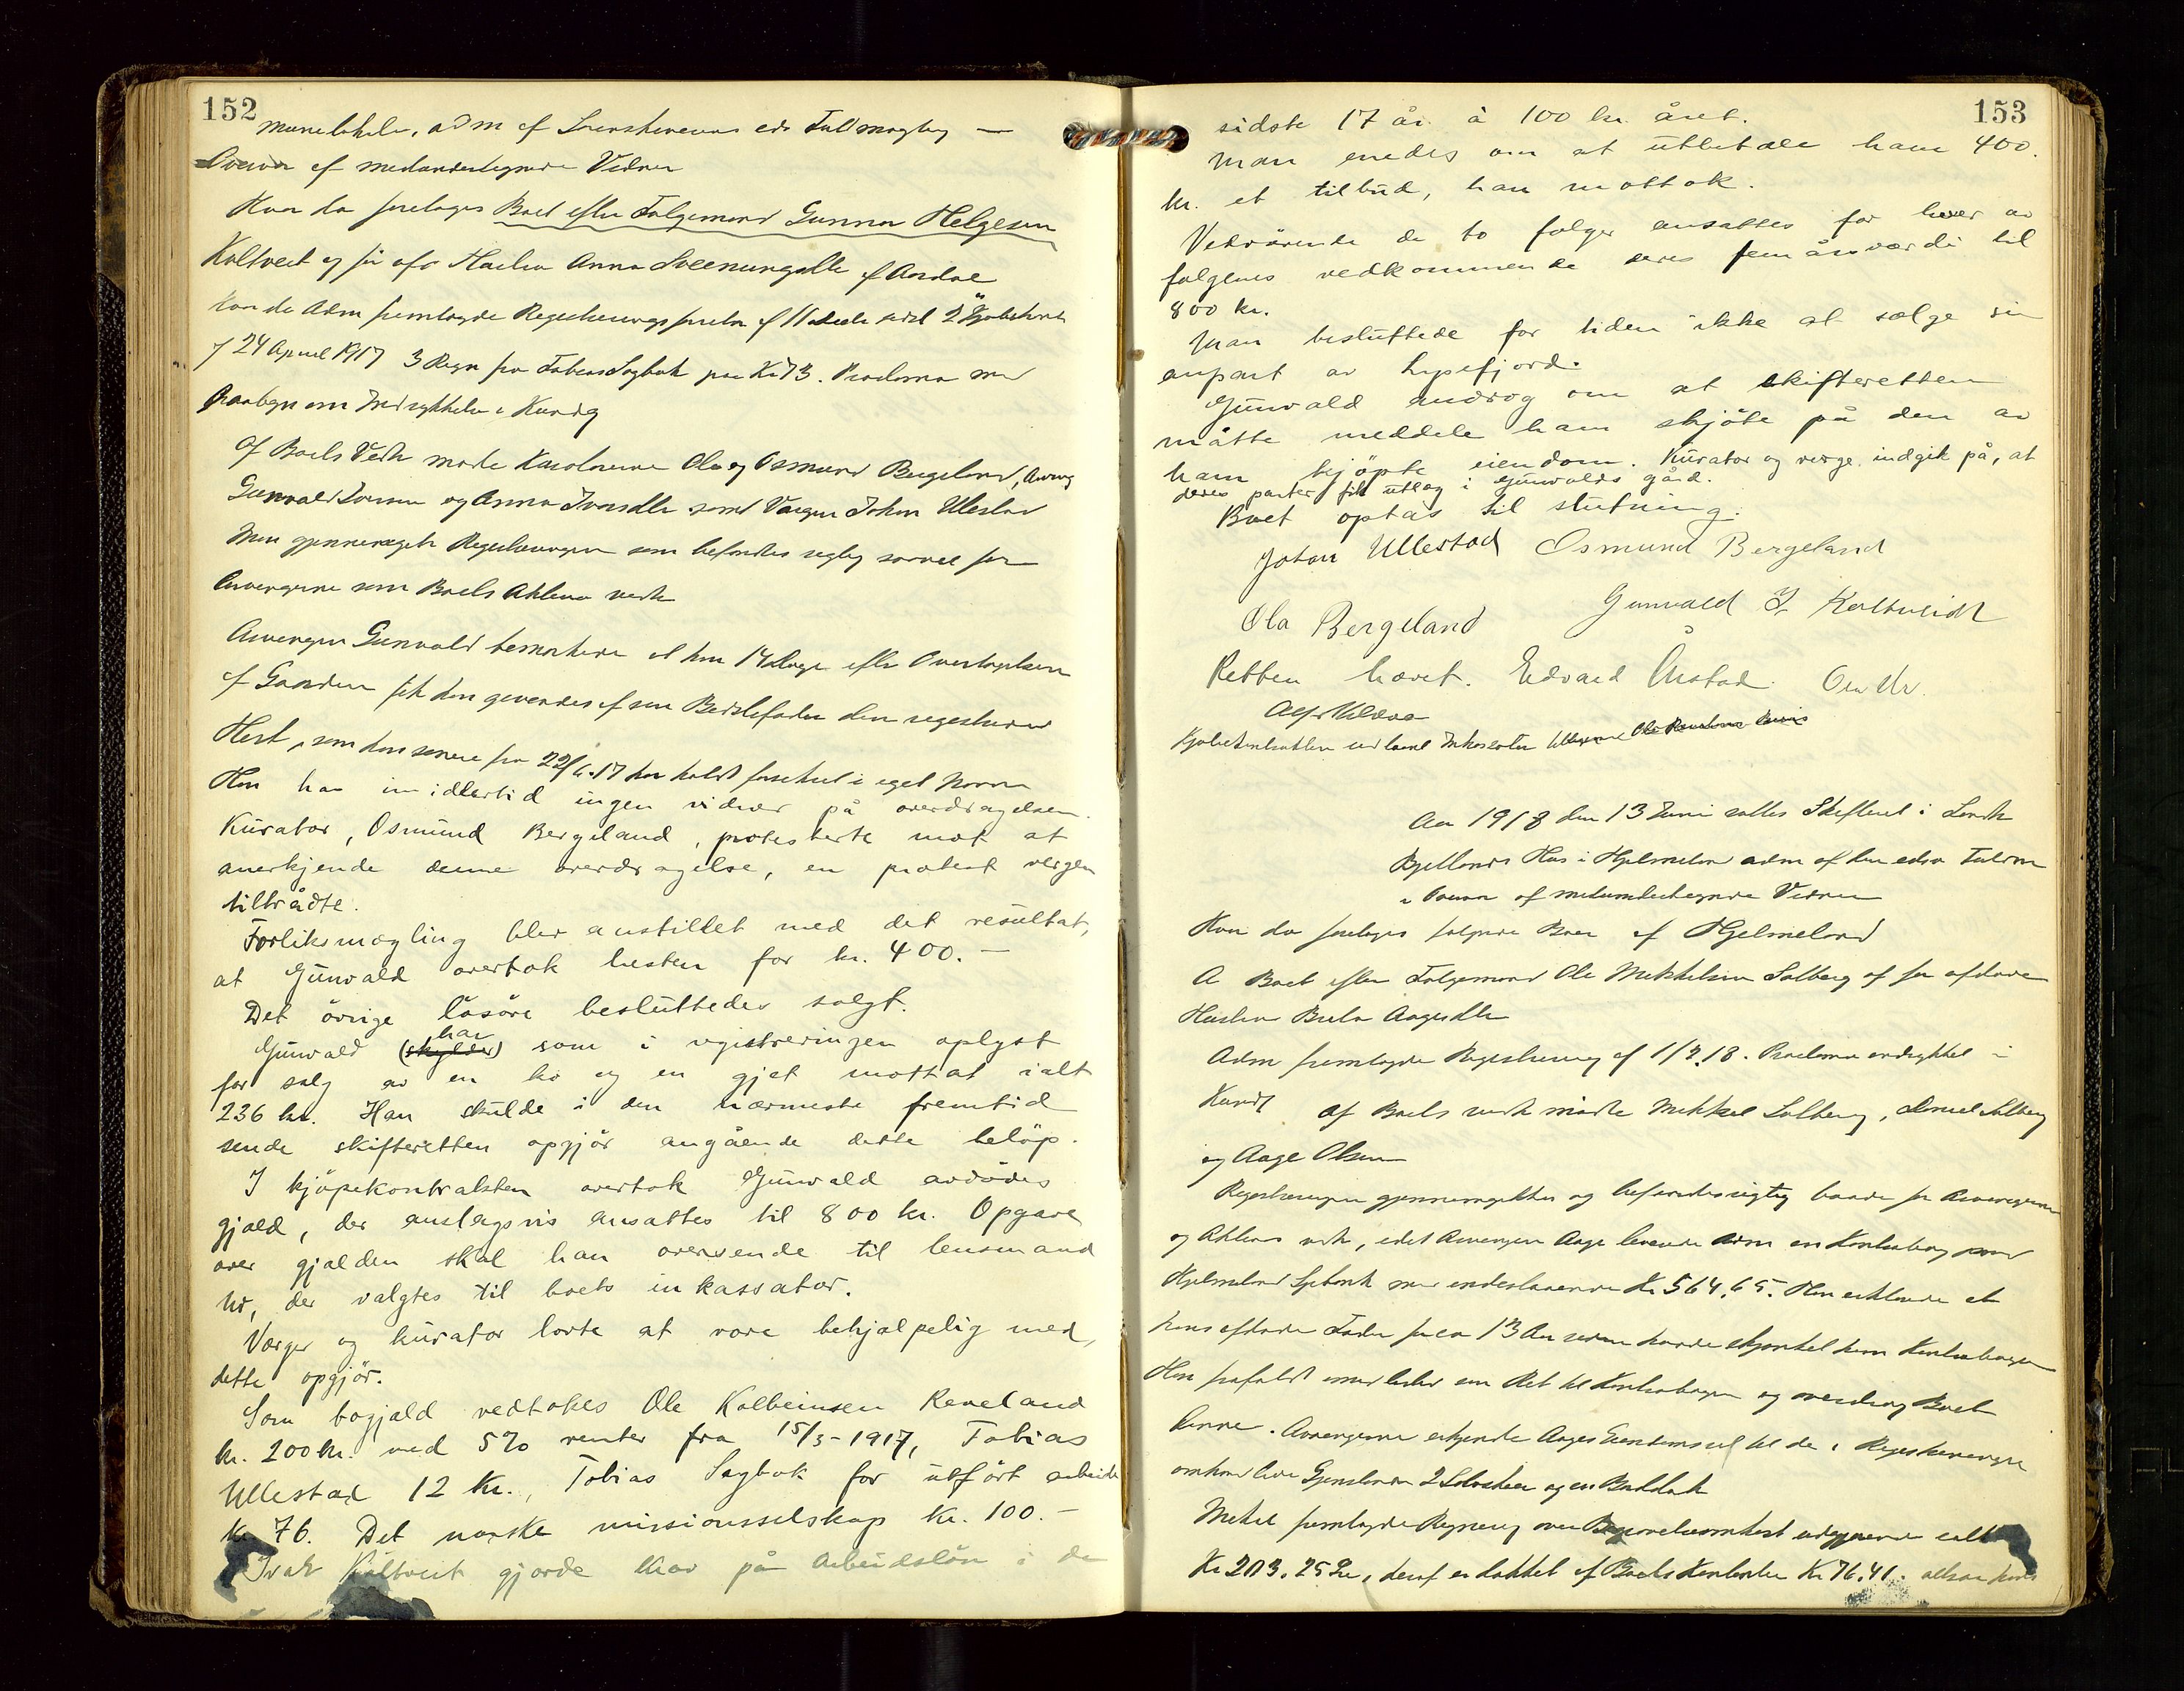 152
adm af Sorenskriveren eds Fuldmægtig —
Overvær af medundertegnede Vidner
Kom da foretages Boet efter Folgemand Gunnar Helgesen
Koltveit og før afd Hustru Anna Sveenungsdtr af Aardal
Kom da Adm fremlagde Registreringsforretn af 11 2 Kjøbekont
af 24 April 1917 3 Regn fra Tobias Sagbak paa Kr 73. Proclama med
Paategn om Indrykkelse i Kundg
Af Boets Vedk mødte Ola og Osmund Bergeland, Arving
Gunvald Ivarsen og Anna Ivarsdtr samt Værgen Johan Ullestad
Man gjennemgik Registreringen som befandtes rigtig saavel for
Arvingerne som Boets Aktiva vedk
Arvingen Gunvald bemærkede at han 14 Dage efter Overtagelsen
af Gaarden fik den gjevendes af sin Bedstefader den registrerte
Hest, som han senere fra 22/6.17 har holdt forsikret i eget Navn
Han har imidlertid ingen vidner på overdragelsen.
Kurator, Osmund Bergeland, protesterte mot at
anerkjende denne overdragelse, en protest vergen
tiltrådte.
Forliksmægling blev anstillet med det resultat,
at Gunvald overtok hesten for kr. 400.-
Det övrige lösöre besluttedes solgt.
har
Gunvald (skylder) som i registreringen oplyst
for salg av en ko og en gjet mottat ialt
236 kr. Han skulde i den nærmeste fremtid
sende skifteretten opgjör angående dette belöp.
I kjöpekontrakten overtok Gunvald avdödes
gjæld, der anslagsvis ansattes til 800 kr. Opgave
over gjælden skal han oversende til lensmand
der valgtes til boets inkassator.
Verge og kurator lovte at være behjælpelig med,
dette opgjör.
Som bogjæld vedtokes Ole Kolbeinsen Reveland
kr. 200 kr. med 5% renter fra 15/3-1917, Tobias
Ullestad 12 Kr., Tobias Sagbak for utfört arbeide
Kr 76. Det norske missionsselskap kr. 100.-
Ivar Koltveit gjorde krav på arbeidslön i de
153
sidste 17 år à 100 kr. året.
Man enedes om at utbetale ham 400.
kr. et tilbud, han mottok.
Vedrörende de to folger ansattes for hver av
folgenes vedkommende deres femårsværdi til
800 kr.
Man besluttede for tiden ikke at sælge sin
anpart av Lysefjord.
Gunvald androg om at skifteretten
måtte meddele ham skjöte på den av
ham kjöpte eiendom. Kurator og verge indgik på, at
deres parter fik utlæg i Gunvalds gård.
Boet optas til slutning.
Johan Ullestad Osmund Bergeland
Ola Bergeland Gunvald I. Koltveidt
Retten hævet. Edvard Årstad.
Kjøbekontrakten udlaant Inkassator
Aar 1918 den 13 Juni sattes Skifteret i Lendsm
Bjellands Hus i Hjelmeland adm af den edsv Fuldm
i Overvær af medundertegnede Vidner
Kom da foretages følgende Boer af Hjelmeland
A Boet efter Folgemand Ole Mikkelsen Solberg og før afdøde
Hustru Berta Aagesdtr
Adm fremlagde Registrering af 1/2.18. Proclama indrykket i
Kundg af Boets vedk mødte Mikkel Solberg, Solberg
og Aage Olsen
Registreringen gjennemgikkes og befandtes rigtig baade for Arvingerne
og Aktivas vedk, idet Arvingen Aage leverede Adm en Kontrabog med
Hjelmeland Spbank med indestaaende Kr 564,65. Han erklærede at
hans afdøde Fader for ca 13 Aar siden havde skjænket ham Kontrabogen
Han frafaldt imidlertid sin Ret til Kontrabogen og overdrog Boet
denne. Arvingerne erkjendte Aages Eiendomsret til de i Registreringen
omhandlede Gjenstande 2 og en
Mikkel fremlagde Regning over Begravelsesomkost udgjørende ialt
Kr 203.25 Øre, deraf er dækket af Boets Kontanter Kr 76.41. altsaa